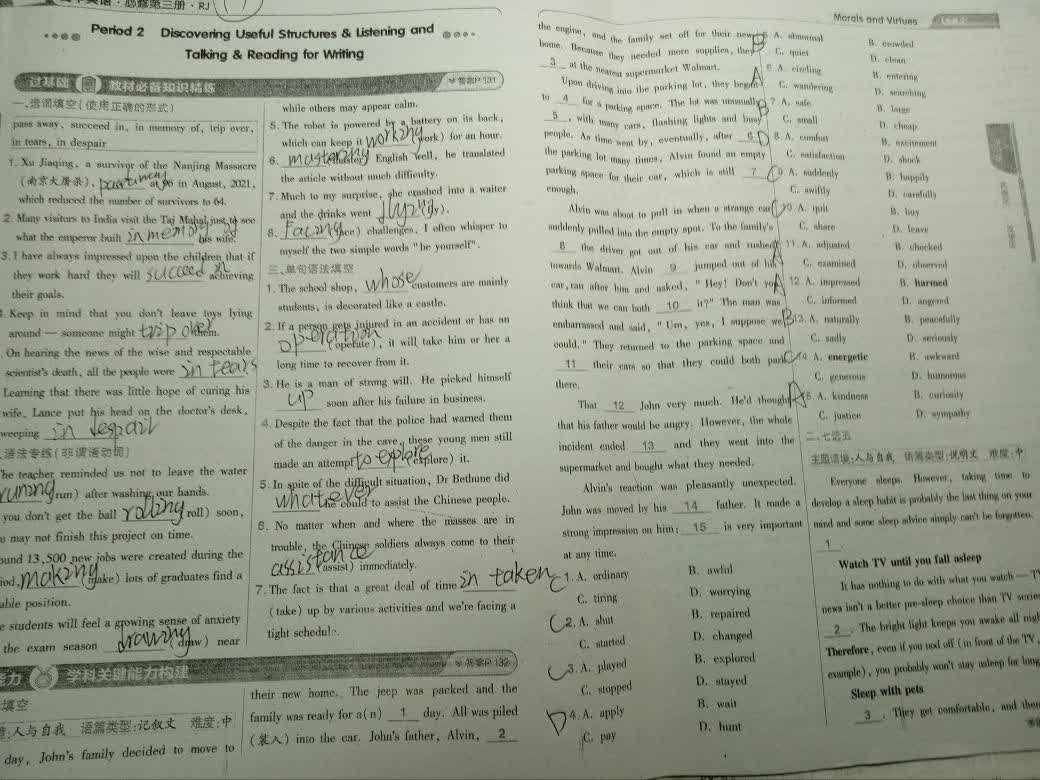 必修第三册·RJ
Period 2 Discovering Useful Structures & Listening and
Talking & Reading for Writing
过基础 教材必备知识精练 答案P 131
一、选词填空(使用正确的形式)
pass away, succeed in, in memory of, trip over,
in tears, in despair
1. Xu Jiaqing, a survivor of the Nanjing Massacre
(南京大屠杀), at 96 in August, 2021,
which reduced the number of survivors to 64.
2. Many visitors to India visit the Taj Mahal just to see
what the emperor built in memory his wife.
3. I have always impressed upon the children that if
they work hard they will succeed in achieving
their goals.
Keep in mind that you don't leave toys lying
around — someone might trip over them.
On hearing the news of the wise and respectable
scientist's death, all the people were in tears
Learning that there was little hope of curing his
wife, Lance put his head on the doctor's desk,
weeping in despair
语法专练(非谓语动词)
The teacher reminded us not to leave the water
runing (run) after washing our hands.
you don't get the ball rolling (roll) soon,
may not finish this project on time.
ound 13,500 new jobs were created during the
iod, making (make) lots of graduates find a
able position.
e students will feel a growing sense of anxiety
the exam season drawing (draw) near
while others may appear calm.
5. The robot is powered by a battery on its back,
which can keep it working (work) for an hour.
6. mastering (master) English well, he translated
the article without much difficulty.
7. Much to my surprise, she crashed into a waiter
and the drinks went flying (fly).
8. Facing (face) challenges, I often whisper to
myself the two simple words "be yourself".
三、单句语法填空
1. The school shop, whose customers are mainly
students, is decorated like a castle.
2. If a person gets injured in an accident or has an
operation (operate), it will take him or her a
long time to recover from it.
3. He is a man of strong will. He picked himself
up soon after his failure in business.
4. Despite the fact that the police had warned them
of the danger in the cave, these young men still
made an attempt to explore (explore) it.
5. In spite of the difficult situation, Dr Bethune did
whatever he could to assist the Chinese people.
6. No matter when and where the masses are in
trouble, the Chinese soldiers always come to their
assistance (assist) immediately.
7. The fact is that a great deal of time in taken
(take) up by various activities and we're facing a
tight schedule.
能力 学科关键能力构建 答案P 132
填空
人与自我 语篇类型:记叙文 难度:中
day, John's family decided to move to
their new home. The jeep was packed and the
family was ready for a(n) 1 day. All was piled
(装入) into the car. John's father, Alvin, 2
Morals and Virtues
the engine, and the family set off for their new
home. Because they needed more supplies, they
3 at the nearest supermarket Walmart.
Upon driving into the parking lot, they began
to 4 for a parking space. The lot was unusually
5, with many cars, flashing lights and busy
people. As time went by, eventually, after 6
the parking lot many times, Alvin found an empty
parking space for their car, which is still 7
enough.
Alvin was about to pull in when a strange car
suddenly pulled into the empty spot. To the family's
8 the driver got out of his car and rushed
towards Walmart. Alvin 9 jumped out of his
car, ran after him and asked, "Hey! Don't you
think that we can both 10 it?" The man was
embarrassed and said, "Um, yes, I suppose we
could." They returned to the parking space and
11 their cars so that they could both park
there.
That 12 John very much. He'd thought
that his father would be angry. However, the whole
incident ended 13 and they went into the
supermarket and bought what they needed.
Alvin's reaction was pleasantly unexpected.
John was moved by his 14 father. It made a
strong impression on him; 15 is very important
at any time.
C 1. A. ordinary B. awful
C. tiring D. worrying
C 2. A. shut B. repaired
C. started D. changed
C 3. A. played B. explored
C. stopped D. stayed
D 4. A. apply B. wait
C. pay D. hunt
B 5 A. abnormal B. crowded
C. quiet D. clean
A 6 A. circling B. entering
C. wandering D. searching
B 7. A. safe B. large
C. small D. cheap
D 8. A. comfort B. excitement
C. satisfaction D. shock
9 A. suddenly B. happily
C. swiftly D. carefully
C 10 A. quit B. buy
C. share D. leave
A 11. A. adjusted B. checked
C. examined D. observed
A 12. A. impressed B. harmed
C. informed D. angered
B 13. A. naturally B. peacefully
C. sadly D. seriously
C 14 A. energetic B. awkward
C. generous D. humorous
A 15. A. kindness B. curiosity
C. justice D. sympathy
二、七选五
主题语境:人与自我 语篇类型:说明文 难度:中
Everyone sleeps. However, taking time to
develop a sleep habit is probably the last thing on your
mind and some sleep advice simply can't be forgotten.
1
Watch TV until you fall asleep
It has nothing to do with what you watch — TV
news isn't a better pre-sleep choice than TV series
2. The bright light keeps you awake all night
Therefore, even if you nod off (in front of the TV,
example), you probably won't stay asleep for long
Sleep with pets
3. They get comfortable, and then